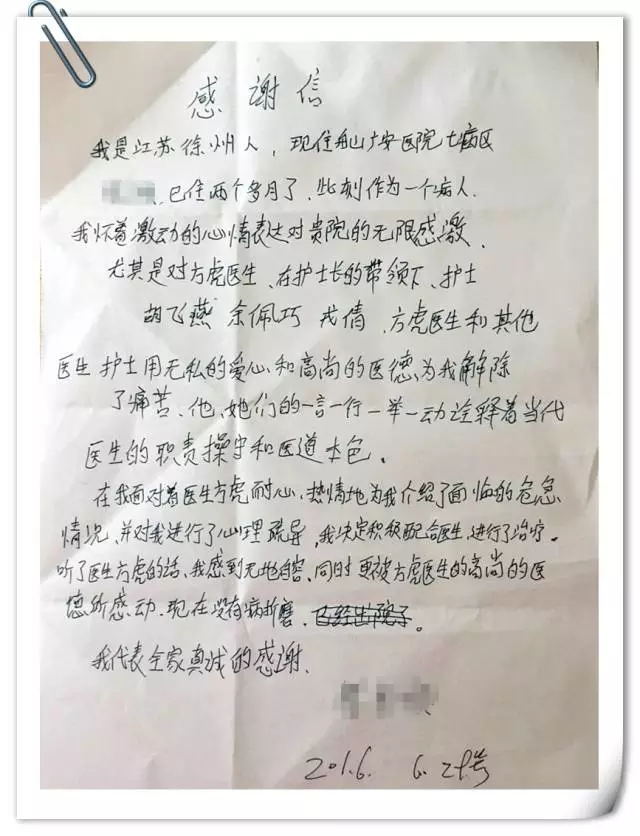 感谢信
我是江苏徐州人，现住舟山广安医院七病区
已住两个多月了，此刻作为一个病人.
我怀着激动的心情表达对贵院的无限感激、
尤其是对方虎医生、在护士长的带领下、护士
胡飞燕 余佩巧 戎倩、方虎医生和其他
医生 护士用无私的爱心和高尚的医德为我解除
了痛苦、他、她们的一言一行一举一动诠释着当代
医生的职责操守和医道本色。
在我面对着医生方虎耐心、热情地为我介绍了面临的危急
情况、并对我进行了心理疏导，我决定积极配合医生、进行了治疗。
听了医生方虎的话、我感到无地自容、同时更被方虎医生的高尚的医
德所感动、现在没有病折磨、已经出院了。
我代表全家真诚的感谢、
201.6. 6.24号